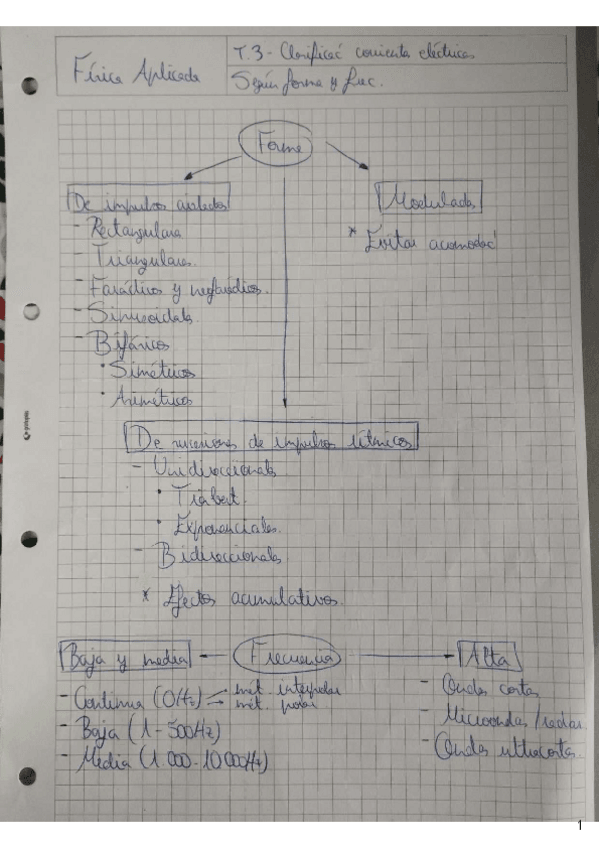 Física Aplicada
T.3 - Clasificac corriente eléctrica
Según forma y frec.
Forma
De impulsos aislados
- Rectangulares
- Triangulares.
- Farádicos y neofarádicos.
- Sinusoidales.
- Bifásicos
· Simétricos
· Asimétricos
Modulada
* Evitar acomodac
De sucesiones de impulsos rítmicos
- Unidireccionales
· Träbert.
· Exponenciales.
- Bidireccionales
* Efectos acumulativos.
Frecuencia
Baja y media
- Continua (0Hz) → mét. interpolar
→ mét. polar
- Baja (1-500Hz)
- Media (1.000-10000Hz)
Alta
- Ondas cortas
- Microondas/radar.
- Ondas ultracortas.
1